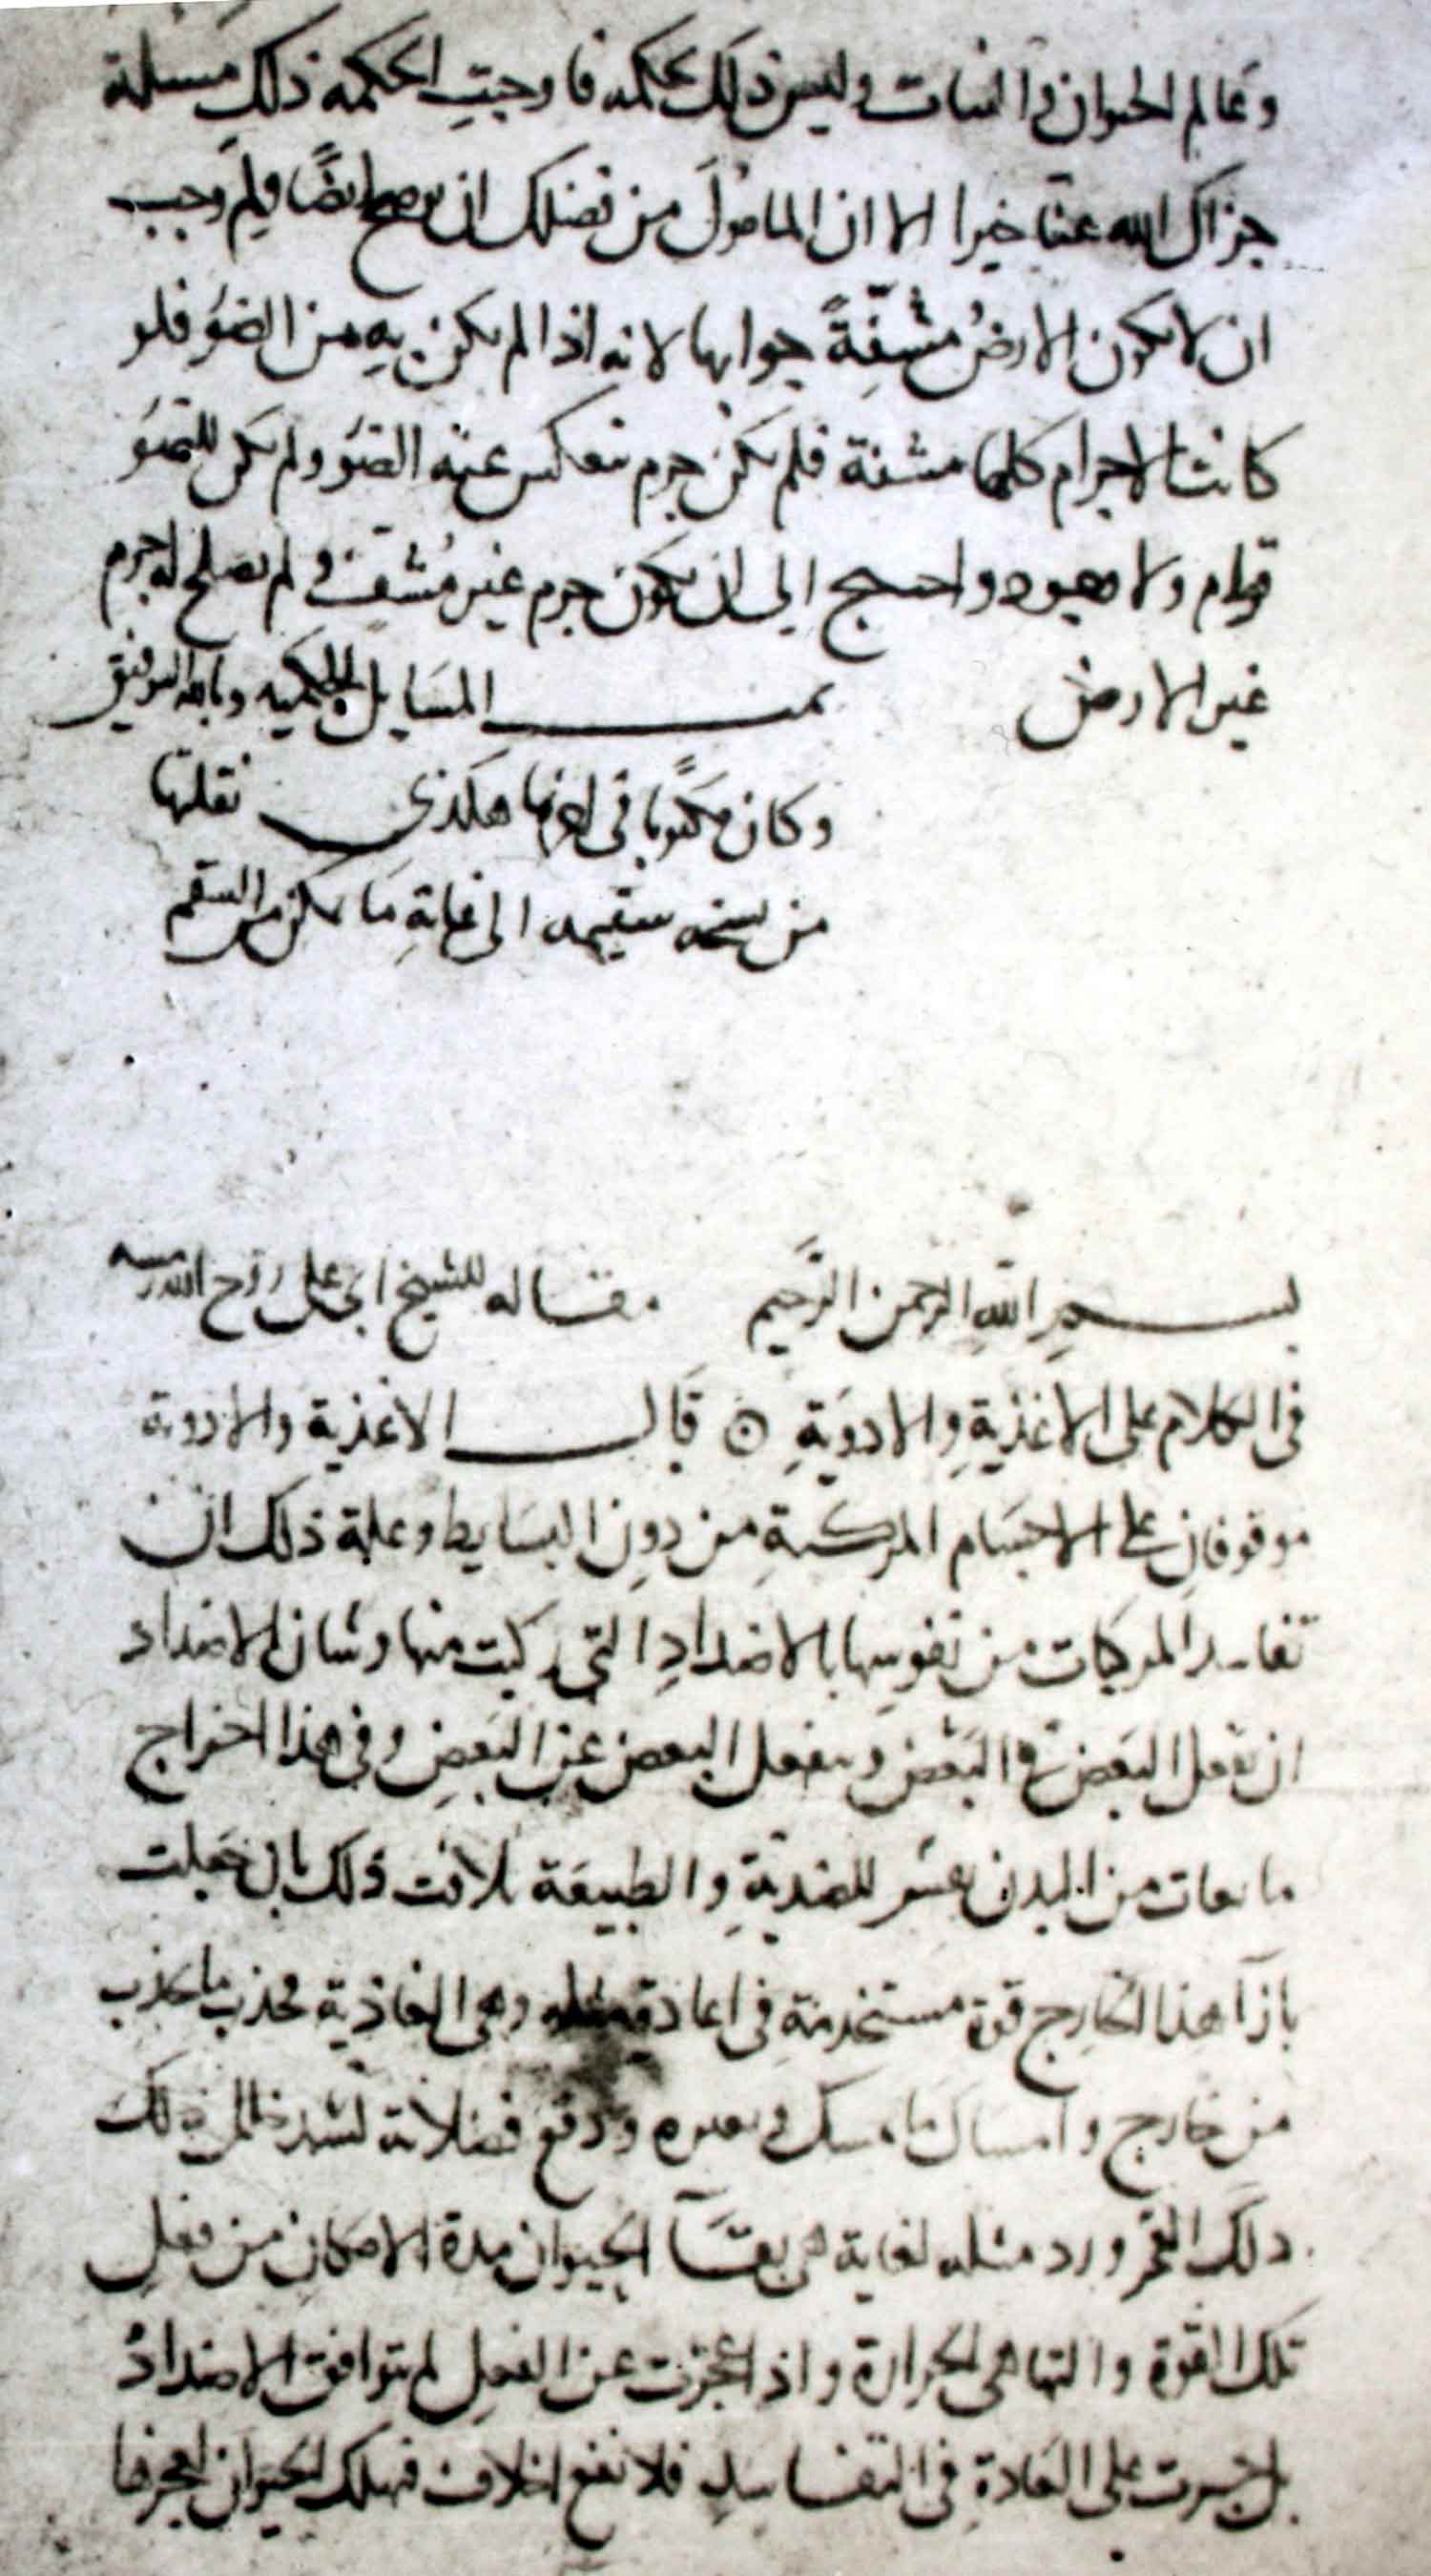 وعالم الحيوان والنبات وليس ذلك بحكمه فاوجبت الحكمه ذلك مسلمة
جزاك الله عنا خيرا الا ان المامول من تفضلك ان توضح ايضًا ولِمَ وجب
ان لا تكون الارضُ مشفّةً جوابها لانه اذا لم يكن بدٍ من الضوُ فلو
كانت الاجرام كلها مشفة فلم يكن جرم ينعكس عنه الضوُ ولم يكن للضوُ
قوام ولا واحتيج الى ان يكون جرم غير مُشفّ ولم يصلح له جرم
غير الارض تمت المسَايل الحكميه وبالله التوفيق
وكان مكتوبًا فى اخرها هكذى نقلتها
من نسخه سقيمه الى غايةِ مَا يمكن من السقم
بسم اللهِ الرحمن الرَّحيم مقاله للشيخ ابى على روّح الله رمسه
فى الكلام على الاغذيةِ والادويَةِ ۞ قَال الاغذية والادوية
موقوفانِ على الاجسَام المركبةِ من دونِ البسَايط وعلة ذلك ان
تفاسد المركبات من نفوسِها بالاضدادِ التى ركبت منها وشان الاضداد
ان يفعل البَعض فى البَعض وينفعل البعض عن البَعضِ وفى هذا اخراج
ما من البدن للضديةِ والطبيعَة تلافت ذلك بان جَعلت
بازآ هذا الخارج قوة مستخدمة فى اعادة مثله وهى الغاذية تجذب ما تجذب
من خارج وامساك ما تمسك وتغيره ودفع فضلاته لتسُد ذلك
ذلك ورد مثله لغاية هى بقَآ الحيوان مدة الامكان من فعلِ
تلك القوة والتها هى الحرارة واذا عجزت عن الفعلِ لم تتوافق الاضدادُ
بل جسرت على العَادةِ فى التفاسدِ فلا يقع اخلاف فيهلك الحيوان لعجزها